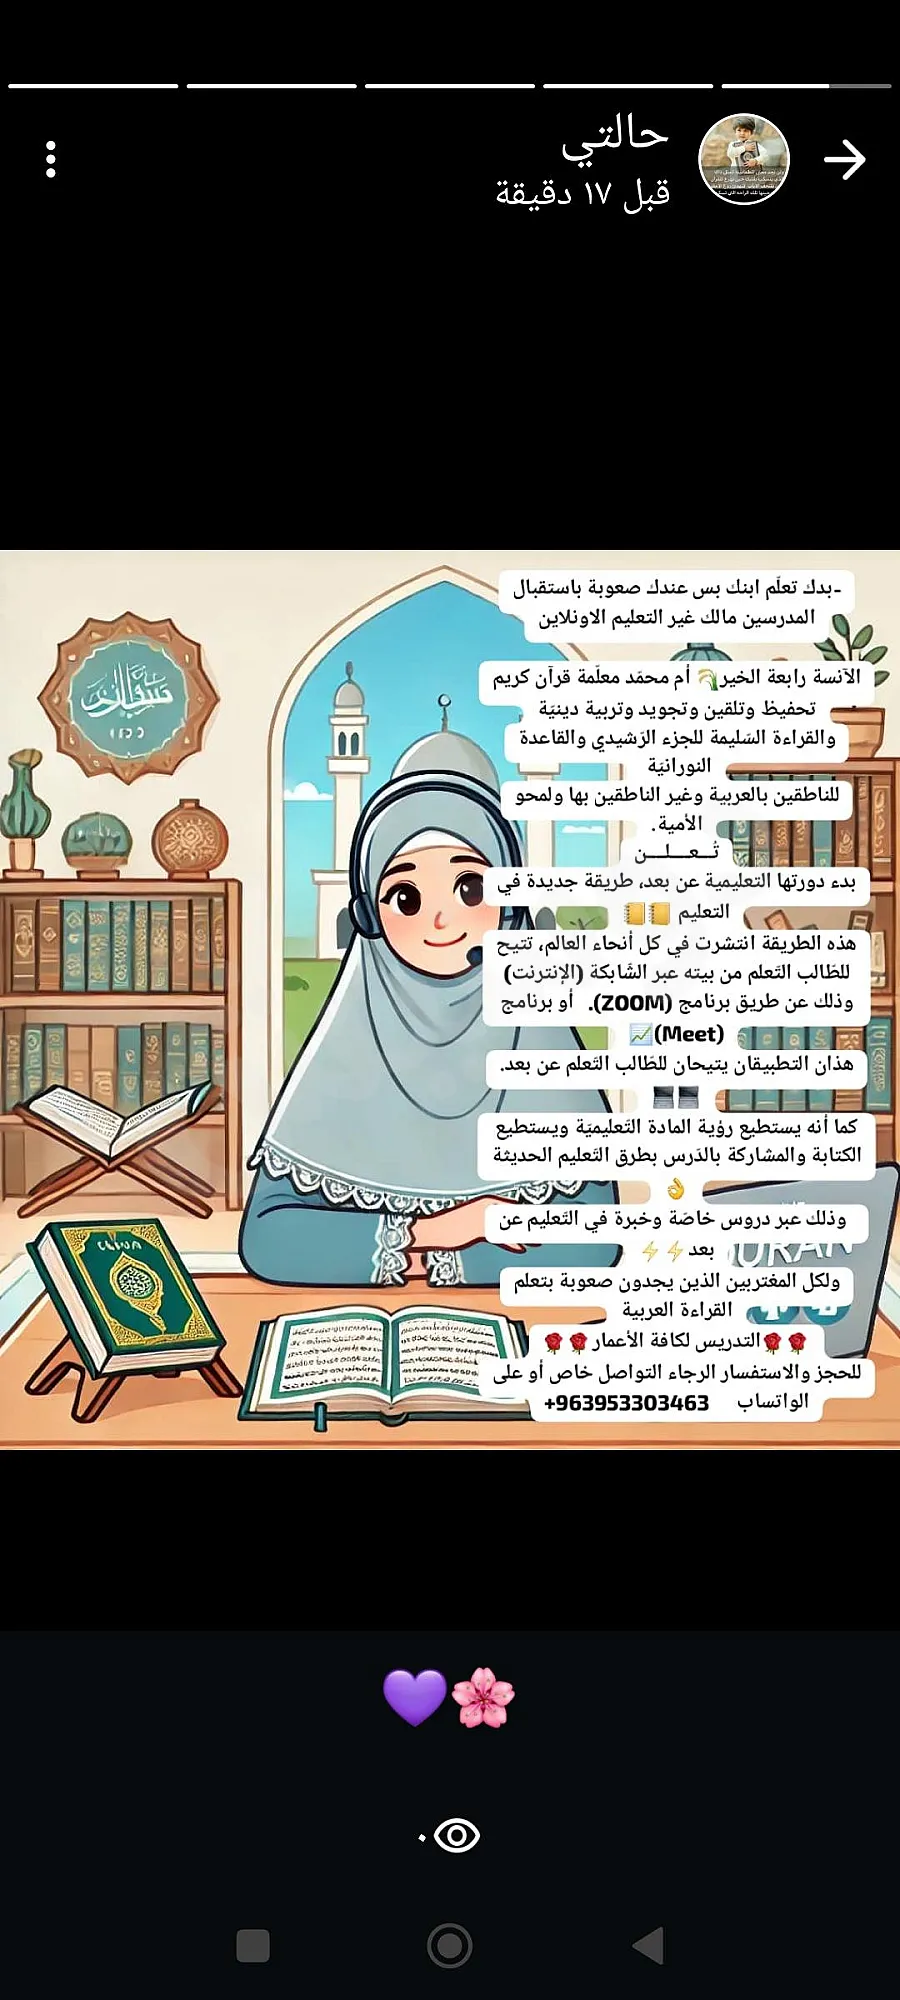 حالتي
قبل ١٧ دقيقة
-بدك تعلّم ابنك بس عندك صعوبة باستقبال
المدرسين مالك غير التعليم الاونلاين
الآنسة رابعة الخير🌾 أم محمّد معلّمة قرآن كريم
تحفيظ وتلقين وتجويد وتربية دينيّة
والقراءة السّليمة للجزء الرّشيدي والقاعدة
النورانيّة
للناطقين بالعربية وغير الناطقين بها ولمحو
الأمية.
تُــعــلــــن
بدء دورتها التعليمية عن بعد، طريقة جديدة في
التعليم 📒📒
هذه الطريقة انتشرت في كل أنحاء العالم، تتيح
للطّالب التّعلم من بيته عبر الشّابكة (الإنترنت)
وذلك عن طريق برنامج (ZOOM). أو برنامج
(Meet)📈
هذان التطبيقان يتيحان للطّالب التّعلم عن بعد.
💻💻
كما أنه يستطيع رؤية المادة التّعليميّة ويستطيع
الكتابة والمشاركة بالدّرس بطرق التّعليم الحديثة
👌
وذلك عبر دروس خاصّة وخبرة في التّعليم عن
بعد⚡⚡
ولكل المغتربين الذين يجدون صعوبة بتعلم
القراءة العربية
🌹🌹التدريس لكافة الأعمار🌹🌹
للحجز والاستفسار الرجاء التواصل خاص أو على
الواتساب +963953303463
URAN
💜🌸
٠